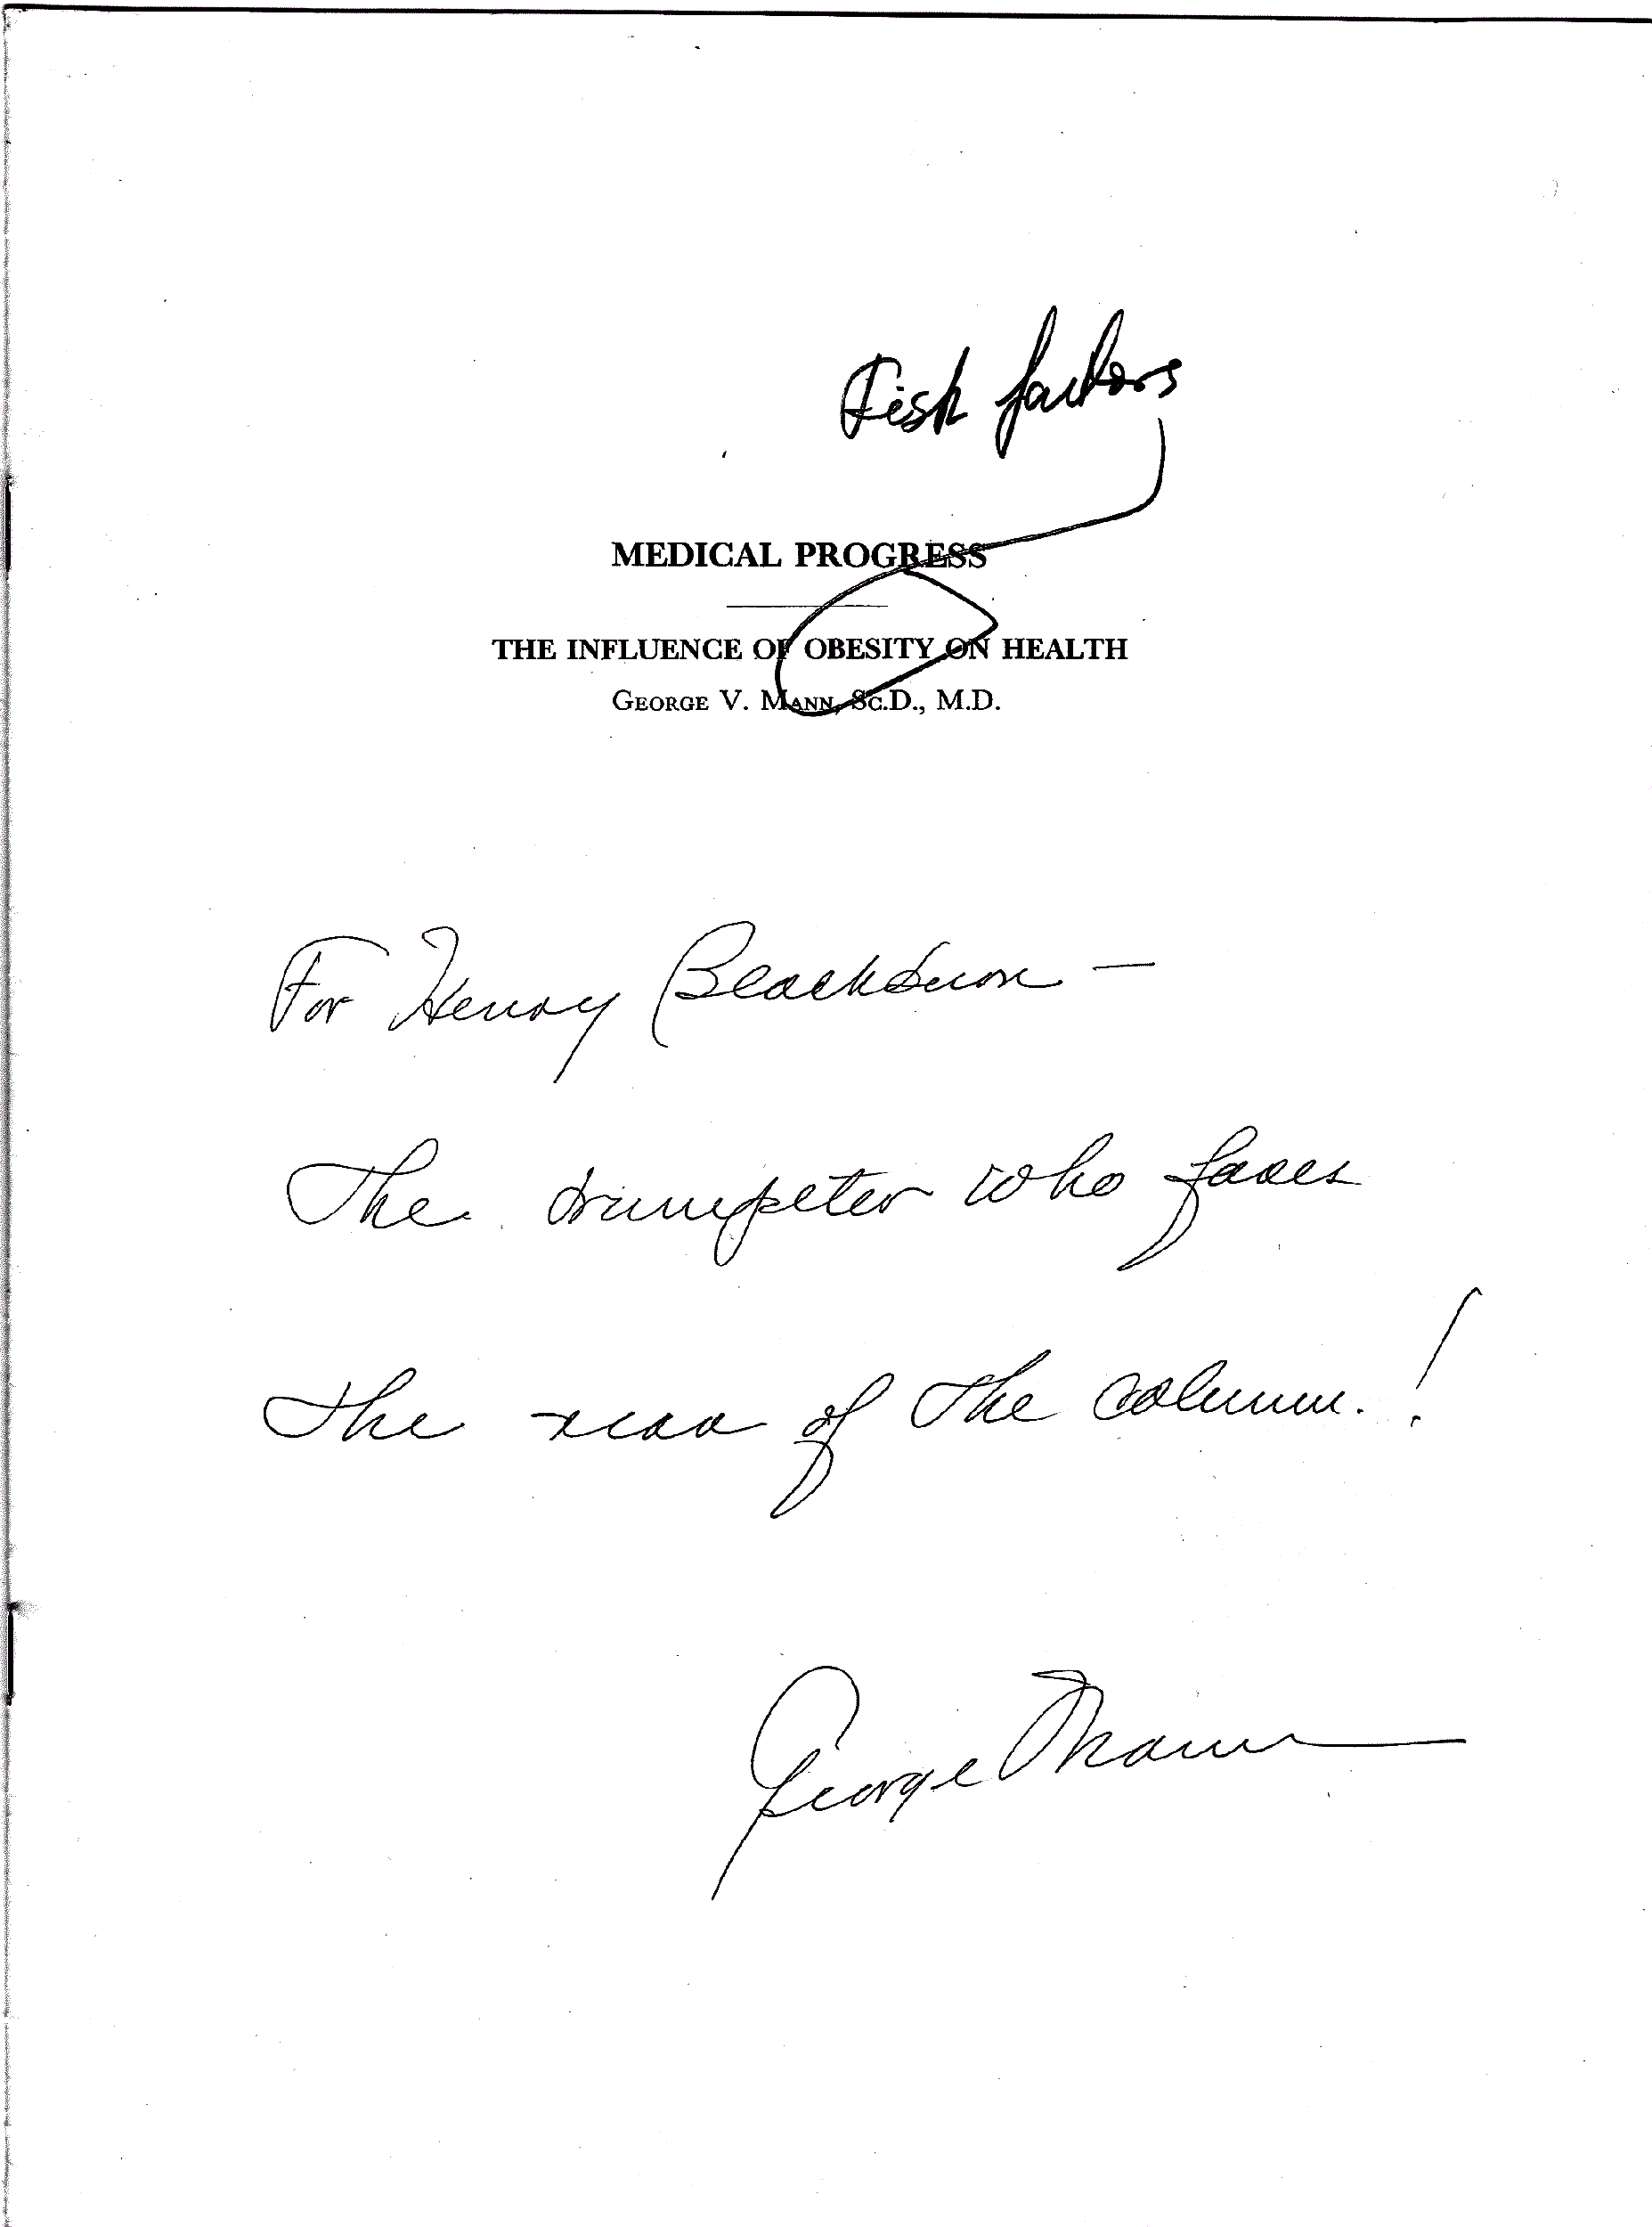 Risk factors
MEDICAL PROGRESS
THE INFLUENCE OF OBESITY ON HEALTH
GEORGE V. MANN, Sc.D., M.D.
For Henry Blackburn —
The trumpeter who faces
the rear of the column. !
George Mann